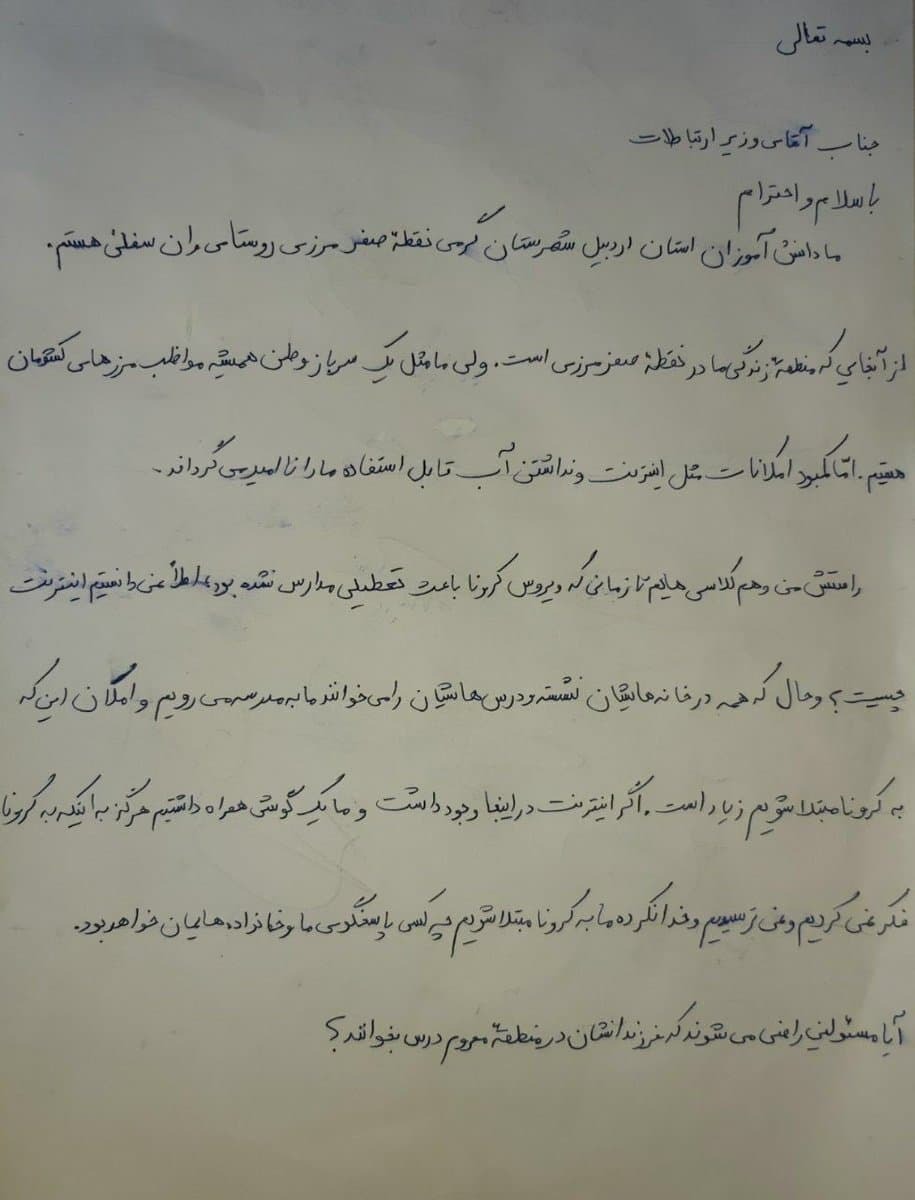 بسمه تعالی
جناب آقای وزیر ارتباطات
با سلام و احترام
ما دانش آموزان استان اردبیل شهرستان گرمی نقطهٔ صفر مرزی روستای ران سفلی هستم.
از آنجایی که منطقهٔ زندگی ما در نقطهٔ صفر مرزی است. ولی ما مثل یک سرباز وطن همیشه مواظب مرزهای کشورمان
هستیم. امّا کمبود امکانات مثل اینترنت و نداشتن آب قابل استفاده ما را نا امید می گرداند.
راستش من و هم کلاسی هایم تا زمانی که ویروس کرونا باعث تعطیلی مدارس نشده بود، اصلاً نمی دانستیم اینترنت
چیست؟ و حال که همه در خانه هایشان نشسته و درس هایشان را می خوانند ما به مدرسه می رویم و امکان این که
به کرونا مبتلا شویم زیاد است. اگر اینترنت در اینجا وجود داشت و ما یک گوشی همراه داشتیم هرگز به اینکه به کرونا
فکر نمی کردیم و نمی ترسیدیم و خدا نکرده ما به کرونا مبتلا شویم چه کسی پاسخگوی ما و خانواده هایمان خواهد بود.
آیا مسئولینی راضی می شوند که فرزندانشان در منطقهٔ محروم درس بخوانند؟